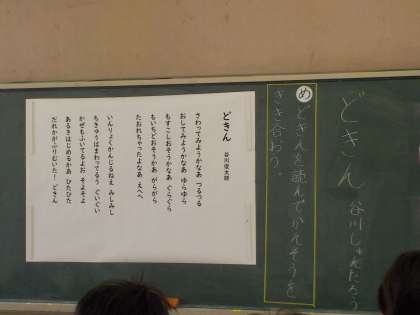 どきん 谷川しゅんたろう
め どきんを読んでかんそうを
きき合おう。
どきん
谷川俊太郎
さわってみようかなあ つるつる
おしてみようかなあ ゆらゆら
もすこしおそうかなあ ぐらぐら
もいちどおそうかあ がらがら
たおれちゃったよなあ えへへ
いんりょくかんじるねえ みしみし
ちきゅうはまわってるう ぐいぐい
かぜもふいてるよお そよそよ
あるきはじめるかあ ひたひた
だれかがふりむいた! どきん